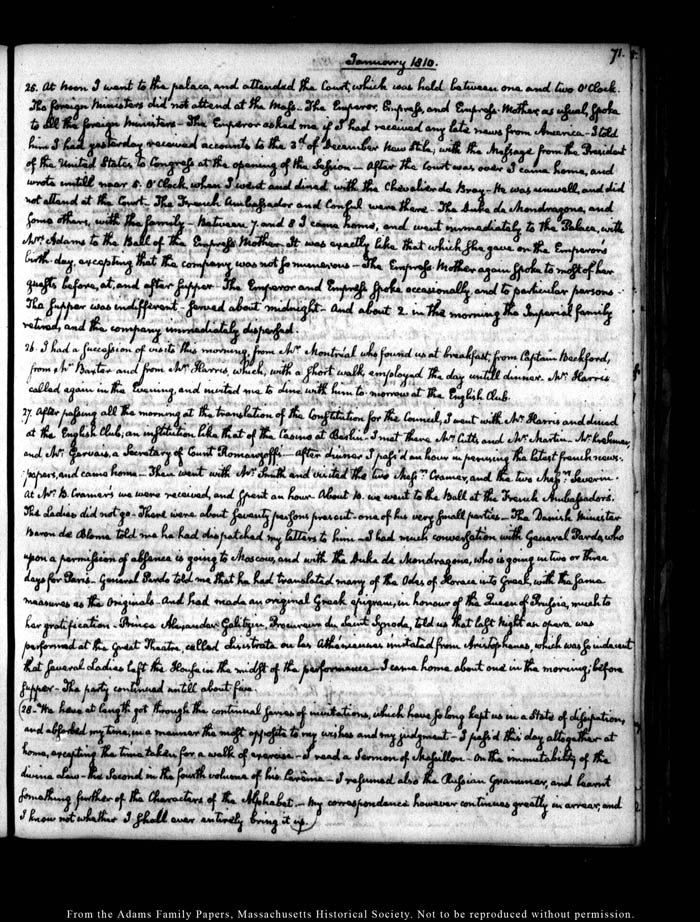 January 1810.
71.
25. At Noon I went to the palace, and attended the Court, which was held between one and two O'Clock.
The foreign Ministers did not attend at the Mass — The Emperor, Empress, and Empress-Mother, as usual, spoke
to all the foreign Ministers — The Emperor asked me if I had received any late news from America — I told
him I had yesterday received accounts to the 3d of December New Stile, with the Message from the President
of the United States, to Congress at the opening of the Session — After the Court was over I came home, and
wrote untill near 5. O'Clock when I went and dined with the Chevalier de Bray — He was unwell, and did
not attend at the Court — The French Ambassador and Consul were there — The Duke de Mondragone, and
some others, with the family — Between 7 and 8 I came home, and went immediately to the Palace, with
Mrs. Adams to the Ball of the Empress Mother. It was exactly like that which she gave on the Emperor's
birth day, excepting that the company was not so numerous — The Empress Mother again spoke to most of her
guests before, at, and after supper — The Emperor and Empress spoke occasionally, and to particular persons —
The supper was indifferent — served about midnight — And about 2. in the morning the Imperial family
retired, and the company immediately dispersed.
26. I had a succession of visits this morning, from Mr. Montréal who found us at breakfast, from Captain Beckford,
from Mr. Baxter and from Mr. Harris, which, with a short walk, employed the day untill dinner. Mr. Harris
called again in the Evening, and invited me to dine with him to-morrow at the English Club.
27. After passing all the morning at the translation of the Constitution for the Council, I went with Mr. Harris and dined
at the English Club; an institution like that of the Casino at Berlin. I met there Mr. Cutts and Mr. Martin — Mr.
and Mr. Gervais, a Secretary of Count Romanzoff's — after dinner I pass'd an hour in perusing the latest french news-
papers, and came home — Then went with Mr. Smith and visited the two Messrs. Cramer, and the two Messrs. Severin.
At Mr. B. Cramer's we were received, and spent an hour. About 10. we went to the Ball at the French Ambassador's.
The Ladies did not go — There were about seventy persons present — one of his very small parties — The Danish Minister
Baron de Blome told me he had dispatched my letters to him — I had much conversation with General Pardo, who
upon a permission of absence is going to Moscow, and with the Duke de Mondragone, who is going in two or three
days for Paris — General Pardo told me that he had translated many of the Odes of Horace into Greek, with the same
measures as the Originals — And had made an original Greek epigram, in honour of the Queen of Prussia, much to
her gratification — Prince Alexander Galitzin, Procureur du Saint Synode, told us that last Night an opera was
performed at the Great Theatre, called Lisistrata ou les Athéniennes imitated from Aristophanes, which was so indecent
that several Ladies left the House in the midst of the performance — I came home about one in the morning; before
supper — The party continued untill about five.
(28. We have at length got through the continual series of invitations, which have so long kept us in a State of dissipation,
and absorbed my time, in a manner the most opposite to my wishes and my judgment — I pass'd this day altogether at
home, excepting the time taken for a walk of exercise — I read a Sermon of Massillon — On the immutability of the
divine Law — the second in the fourth volume of his Carême — I resumed also the Russian Grammar, and learnt
something further of the Characters of the Alphabet — My correspondence however continues greatly in arrear, and
I know not whether I shall ever entirely bring it up.)
From the Adams Family Papers, Massachusetts Historical Society. Not to be reproduced without permission.